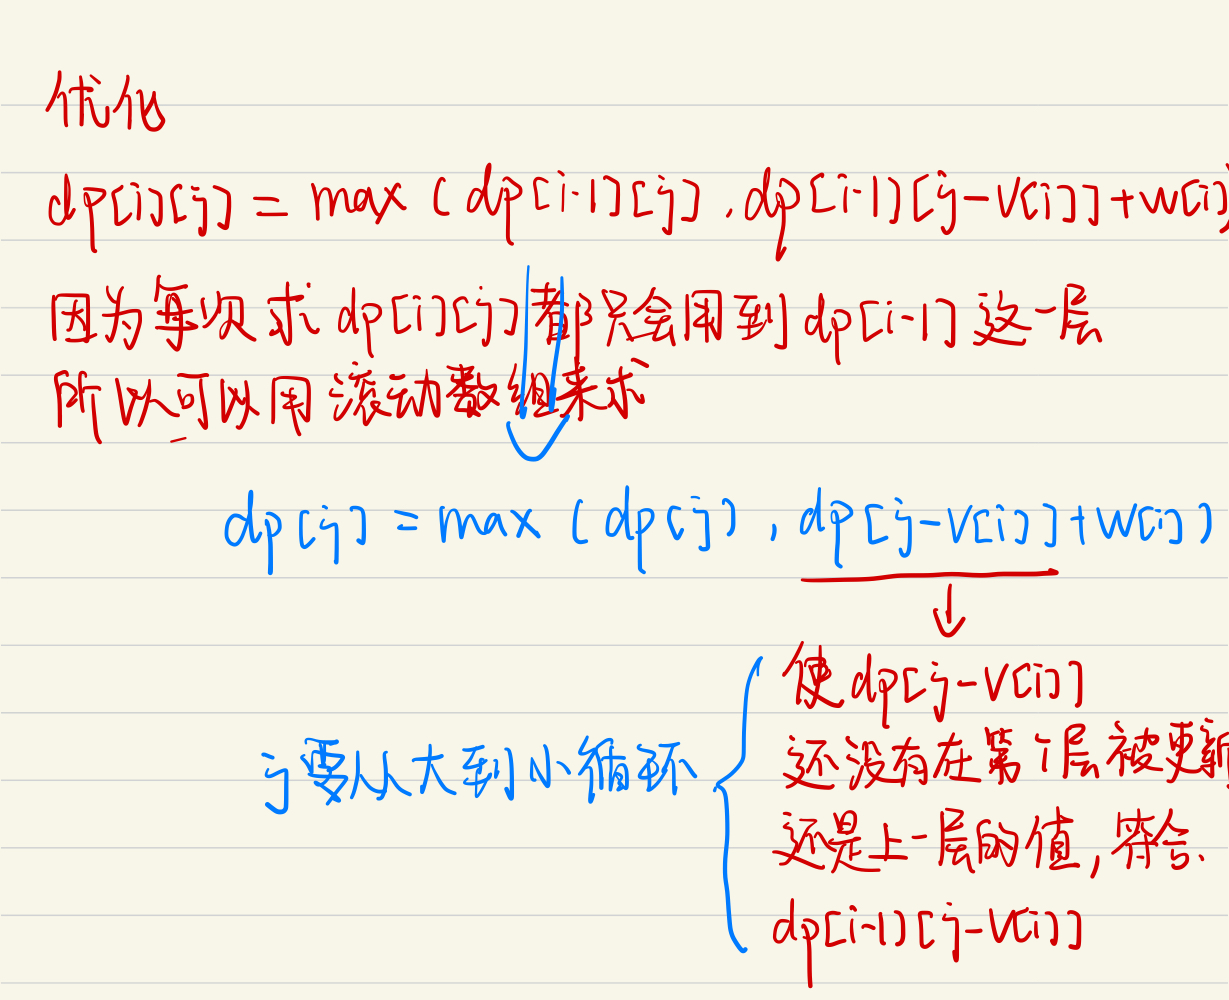 优化
dp[i][j] = max (dp[i-1][j], dp[i-1][j-v[i]]+w[i]
因为每次求dp[i][j]都只会用到dp[i-1]这一层
所以可以用滚动数组来求
dp[j] = max (dp[j], dp[j-v[i]]+w[i])
使dp[j-v[i]]
j要从大到小循环
还没有在第i层被更新
还是上一层的值,符合.
dp[i-1][j-v[i]]